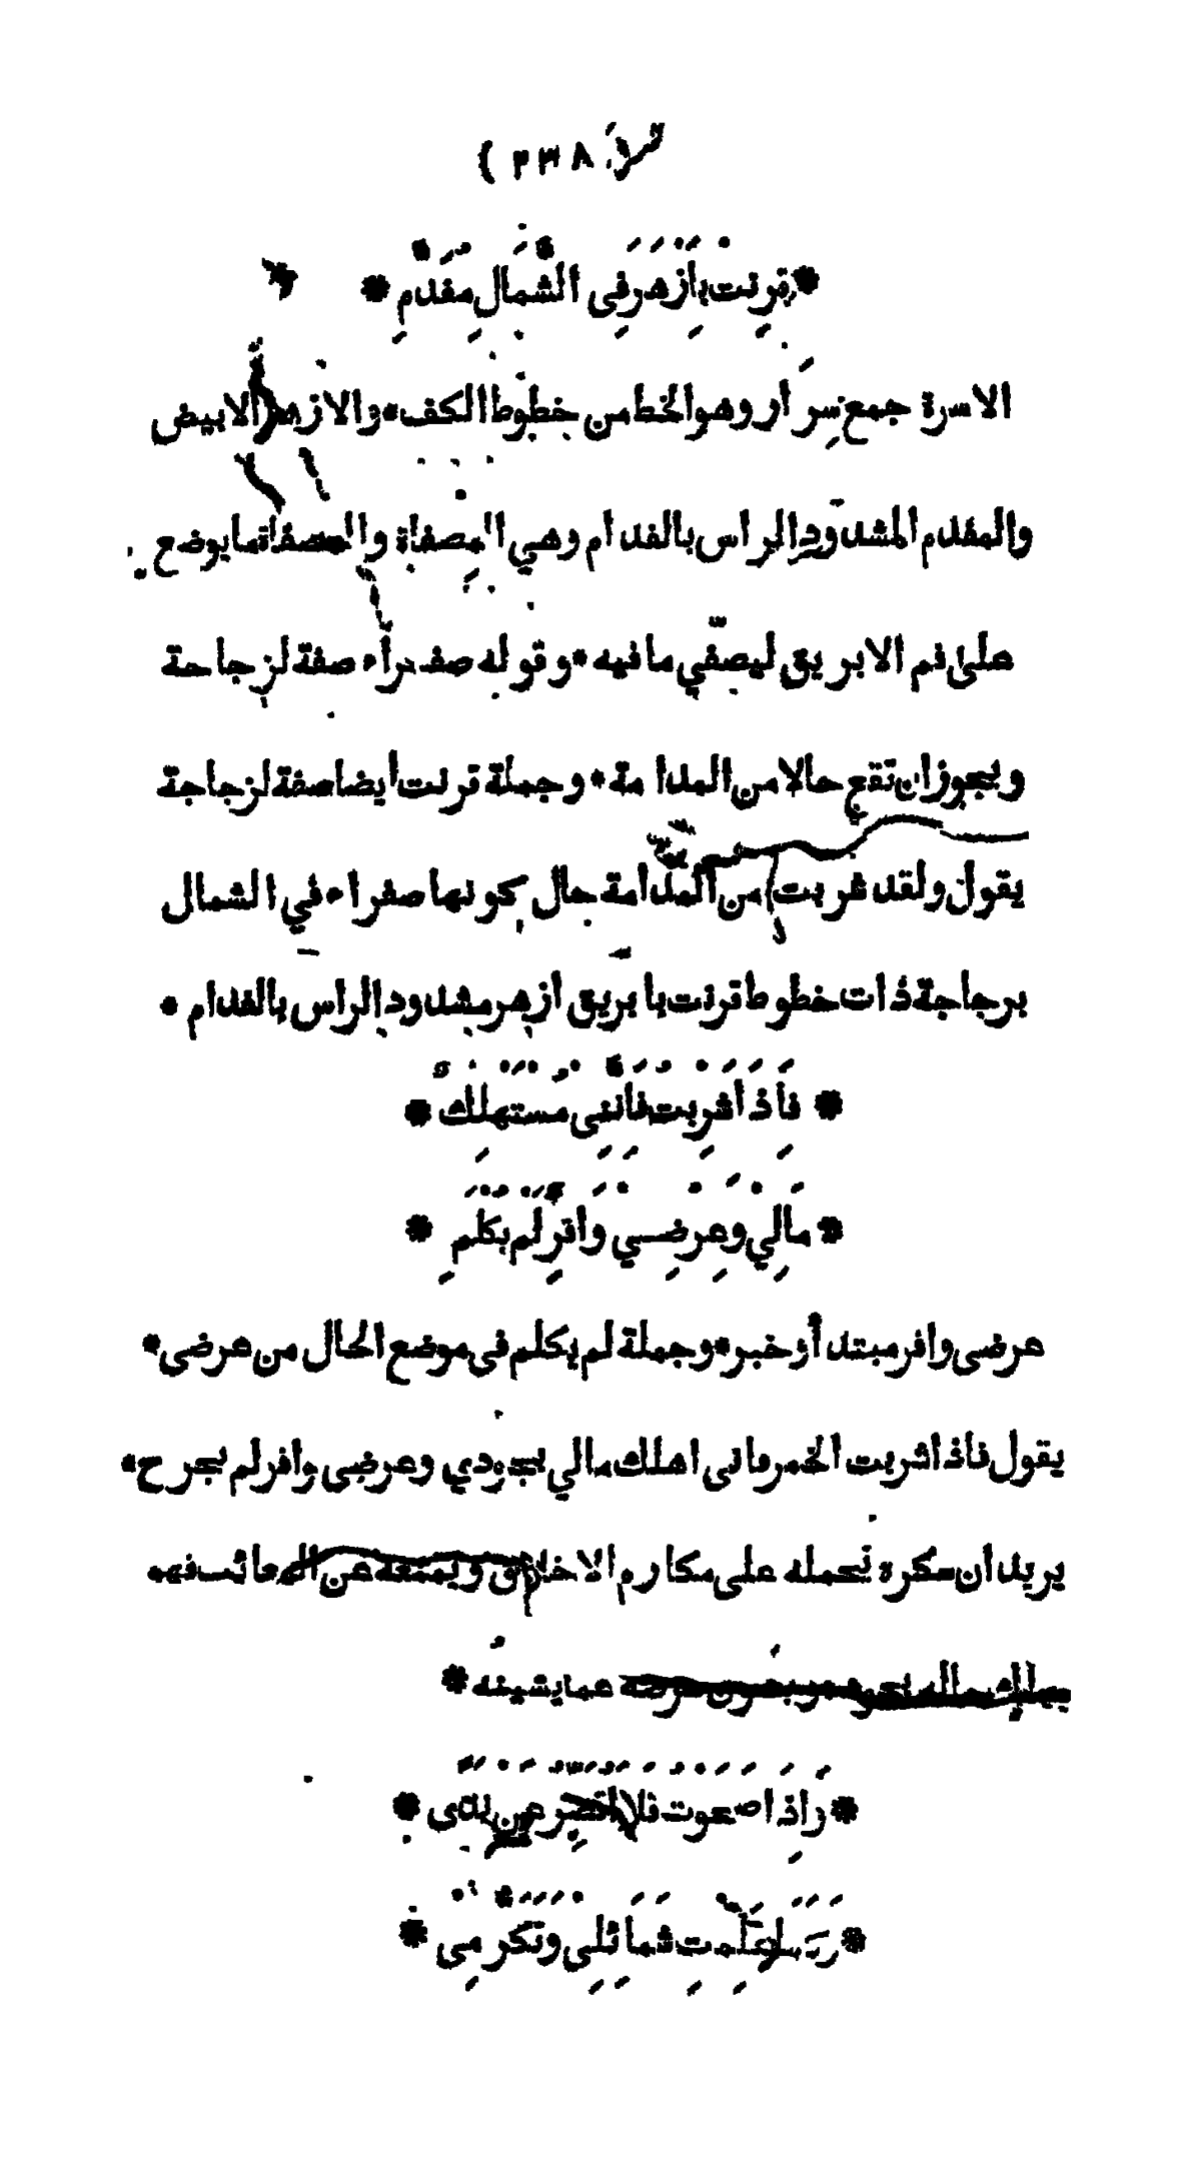 ( ٢٣٨ )
* قُرِنَتْ بِأَزْهَرَ فِى الشَّمَالِ مُفَدَّمِ *
الاسرة جمع سِرار وهو الخط من خطوط الكف * والازهر الابيض
والمفدم المشدود الراس بالفدام وهي المِصفاة والمصفاة ما يوضع
على فم الابريق ليصفّي ما فيه * وقوله صفراء صفة لزجاجة
ويجوز ان تقع حالا من المدامة * وجملة قرنت ايضا صفة لزجاجة
يقول ولقد شربت من المدامة حال كونها صفراء في الشمال
بزجاجة ذات خطوط قرنت بابريق ازهر مشدود الراس بالفدام *
* فَاِذَا شَرِبْتُ فَاِنَّنِى مُسْتَهْلِكٌ *
* مَالِي وَعِرْضِي وَافِرٌ لَمْ يُكْلَمِ *
عرضى وافر مبتدأ وخبر * وجملة لم يكلم فى موضع الحال من عرضى *
يقول فاذا شربت الخمر فانى اهلك مالي بجودي وعرضى وافر لم يجرح *
يريد ان سكره تحمله على مكارم الاخلاق ويمنعه عن المعائب فهو
يهلك ماله بجوده ويصون عرضه عما يشينه *
* وَاِذَا صَحَوْتُ فَلَا اُقَصِّرُ عَنْ نَدًى *
* وَكَمَا عَلِمْتِ شَمَائِلِى وَتَكَرُّمِى *